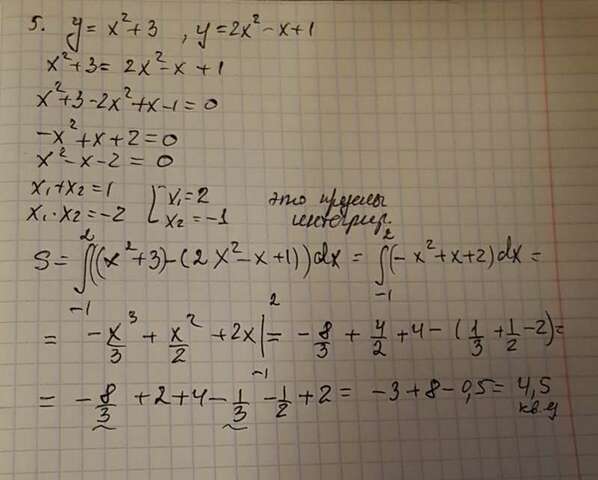 5. y = x² + 3 , y = 2x² - x + 1
x² + 3 = 2x² - x + 1
x² + 3 - 2x² + x - 1 = 0
-x² + x + 2 = 0
x² - x - 2 = 0
x₁ + x₂ = 1 [ x₁ = 2 это пределы
x₁ · x₂ = -2 [ x₂ = -1 интегрир.
S = ∫₋₁² ((x² + 3) - (2x² - x + 1)) dx = ∫₋₁² (-x² + x + 2) dx =
= -x³/3 + x²/2 + 2x |₋₁² = -8/3 + 4/2 + 4 - (1/3 + 1/2 - 2) =
= -8/3 + 2 + 4 - 1/3 - 1/2 + 2 = -3 + 8 - 0,5 = 4,5
кв.ед